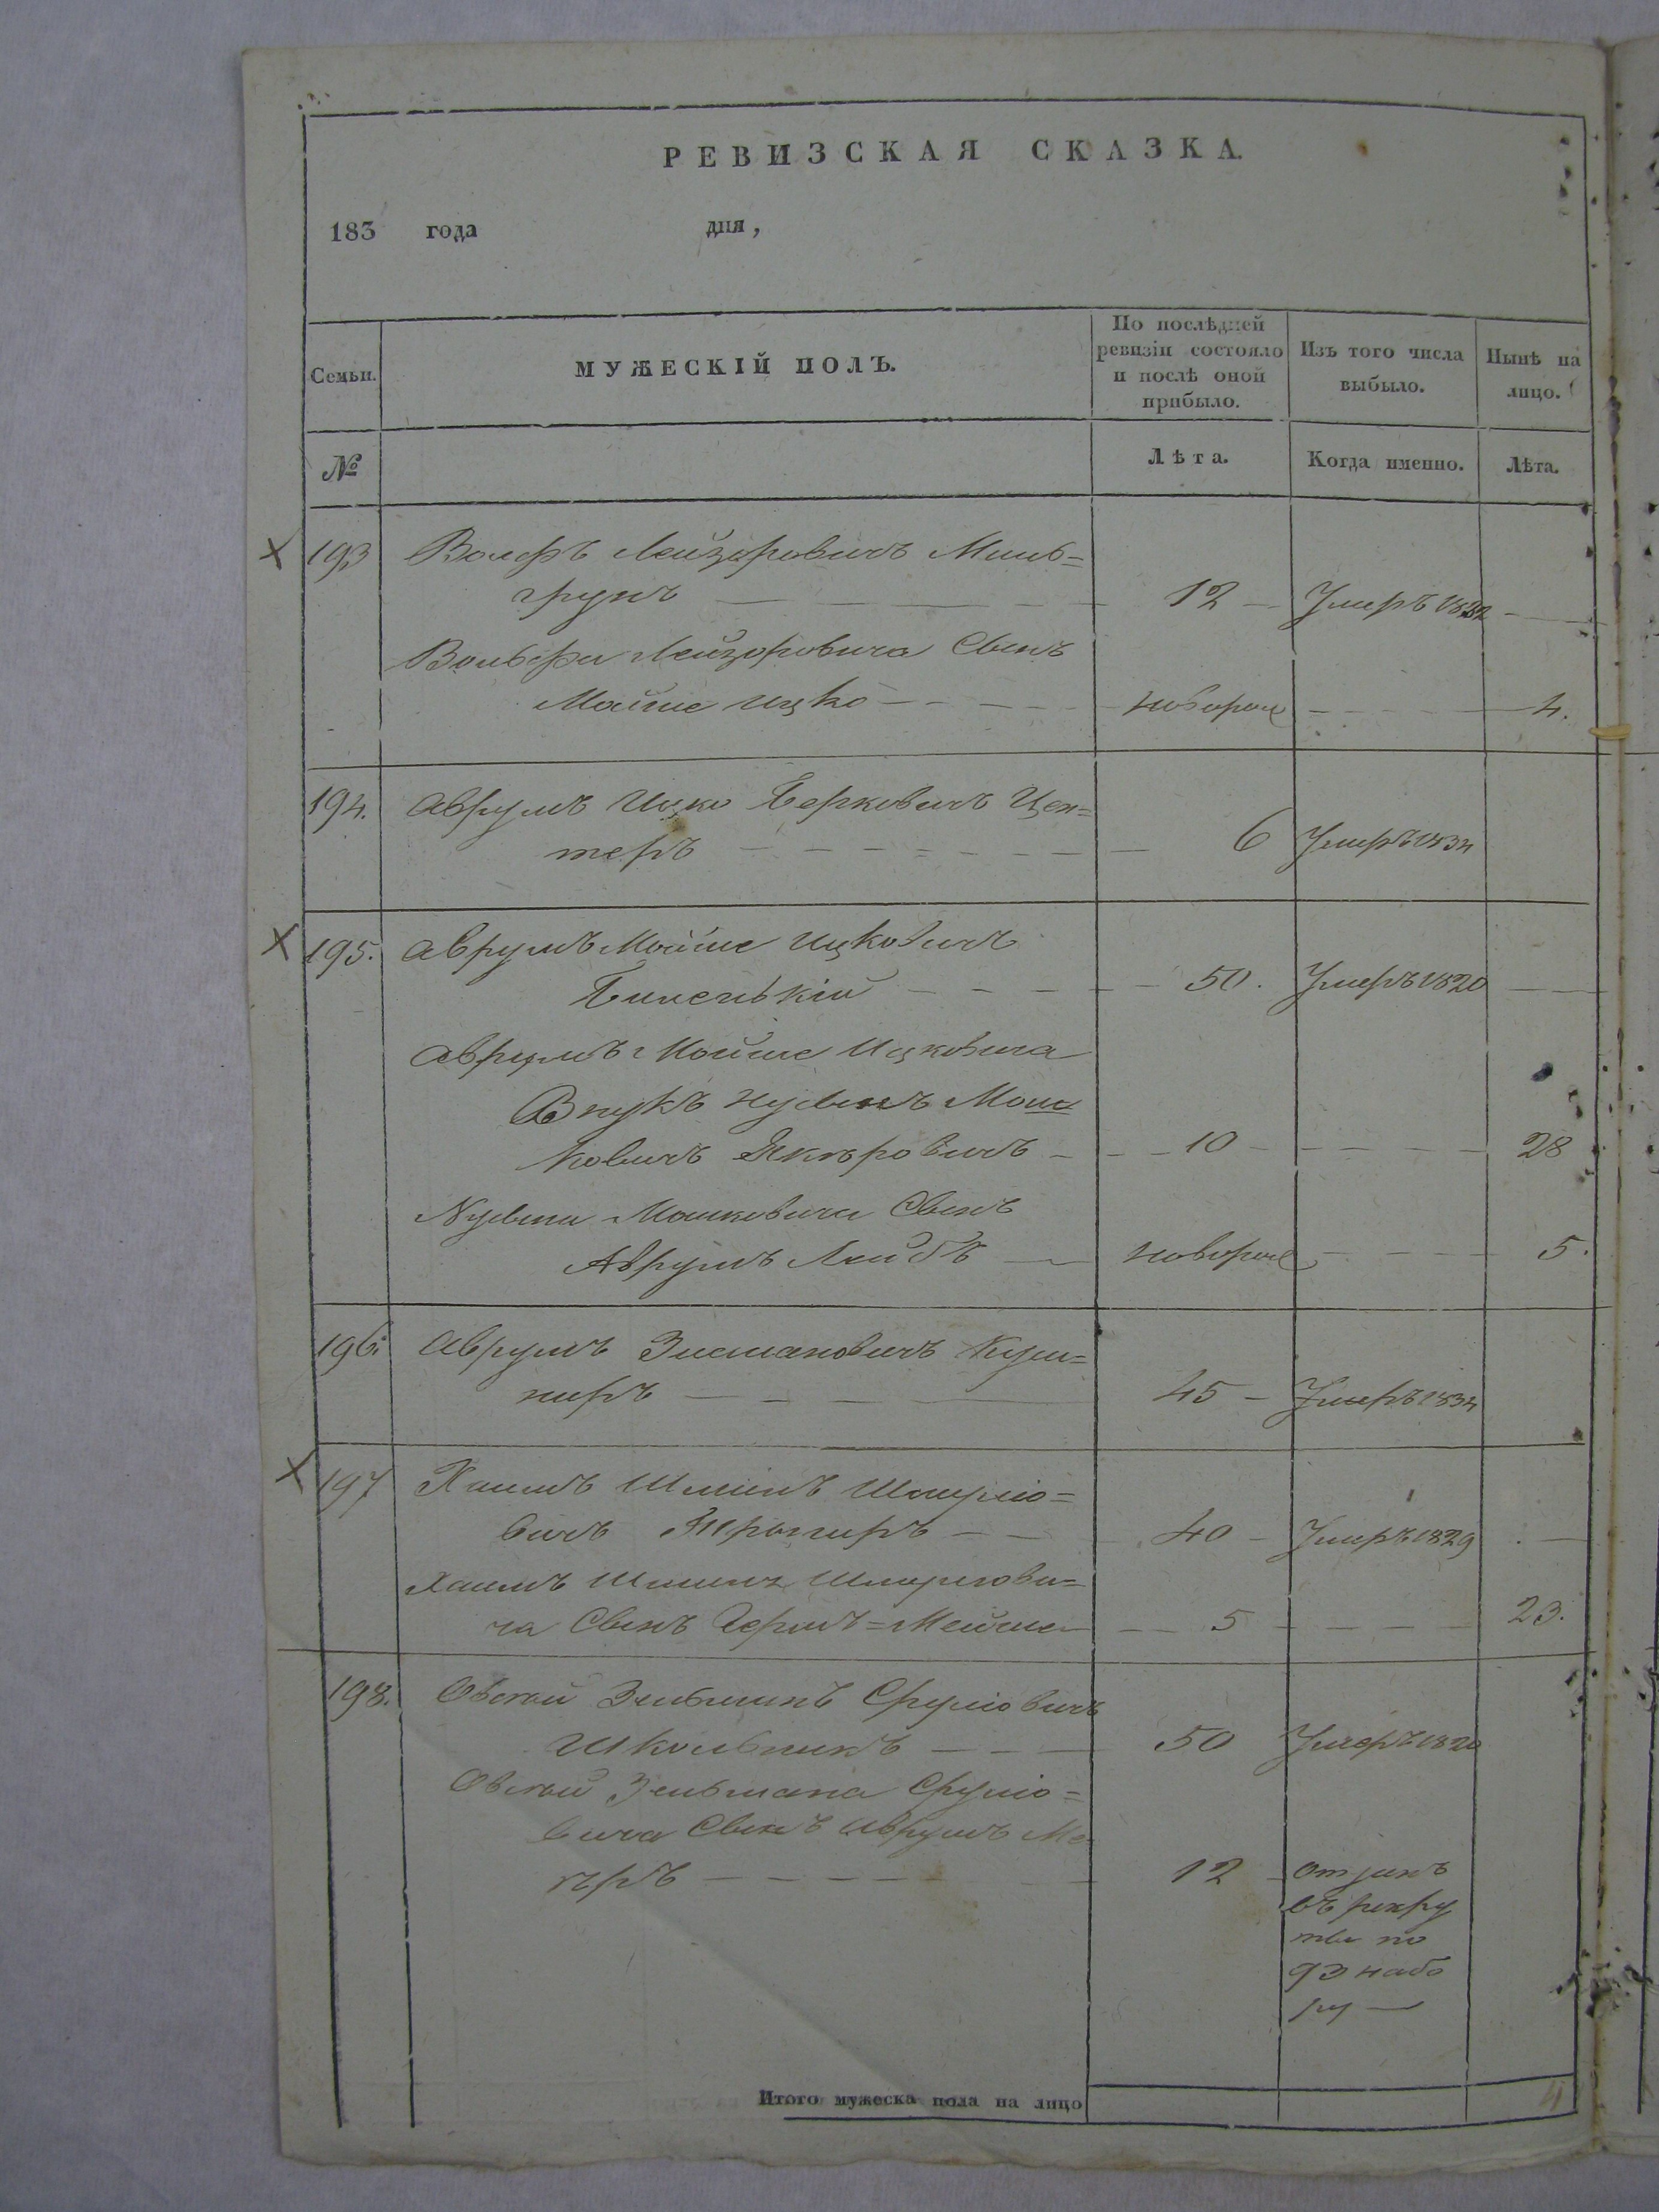 РЕВИЗСКАЯ СКАЗКА.
183 года дня,
Семьи.
МУЖЕСКІЙ ПОЛЪ.
По послѣдней ревизіи состояло и послѣ оной прибыло.
Изъ того числа выбыло.
Нынѣ на лицо.
№
Лѣта.
Когда именно.
Лѣта.
193 Волфъ Лейзоровичъ Миль=
грумъ 12 Умеръ 1832
Вольфа Лейзоровича Сынъ
Мойше Ицко новорож 4.
194. Аврумъ Ицко Берковичъ Цен=
теръ 6 Умеръ 1834
195. Аврумъ Мойше Ицковичъ
50. Умеръ 1820
Аврумъ Мойше Ицковича
Внукъ Нусынъ Мош
ковичъ 10 28
Нусына Мошковича Сынъ
Аврумъ Лейбъ новорож 5.
196. Аврумъ Зисмановичъ Куш=
ниръ 45 Умеръ 1834
197 Хаимъ Шлиомъ Шмуліо=
вичъ 40 Умеръ 1829
Хаимъ Шмуліови=
ча Сынъ Гершъ=Мейше 5 23.
198. Овсей Зельманъ Сруліовичъ
Школьникъ 50 Умеръ 1820
Овсей Зельмана Сруліо=
вича Сынъ Аврумъ Ме
ѣръ 12 отданъ
въ рекру
ты по
93 набо
ру
Итого мужеска пола на лицо 4